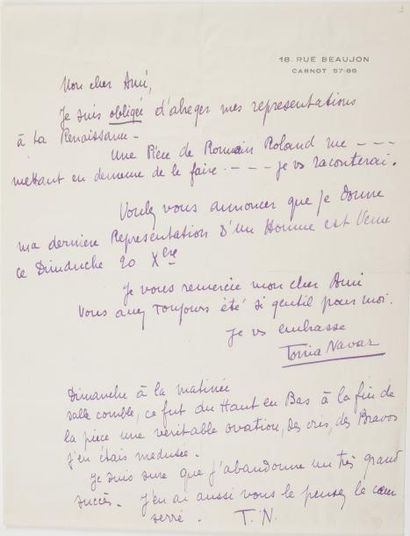 18, RUE BEAUJON
CARNOT 57-86
Mon cher Ami,
Je suis obligée d'abreger mes representations
à La Renaissance -
Une Pièce de Romain Roland me - - -
mettant en demeure de le faire. - - - je vs raconterai.
Voulez vous annoncer que je donne
ma derniere Representation D'Un Homme est Venu
ce Dimanche 20 Xbre
Je vous remercie mon cher Ami
Vous avez toujours été si gentil pour moi.
Je vs embrasse
Tonia Navar
Dimanche à la matinée
salle comble, ce fut du Haut en Bas à la fin de
la pièce une véritable ovation, des cris, des Bravos
j'en étais medusée.
Je suis sure que j'abandonne un très grand
succès. J'en ai aussi vous le pensez le cœur
serré. T.N.